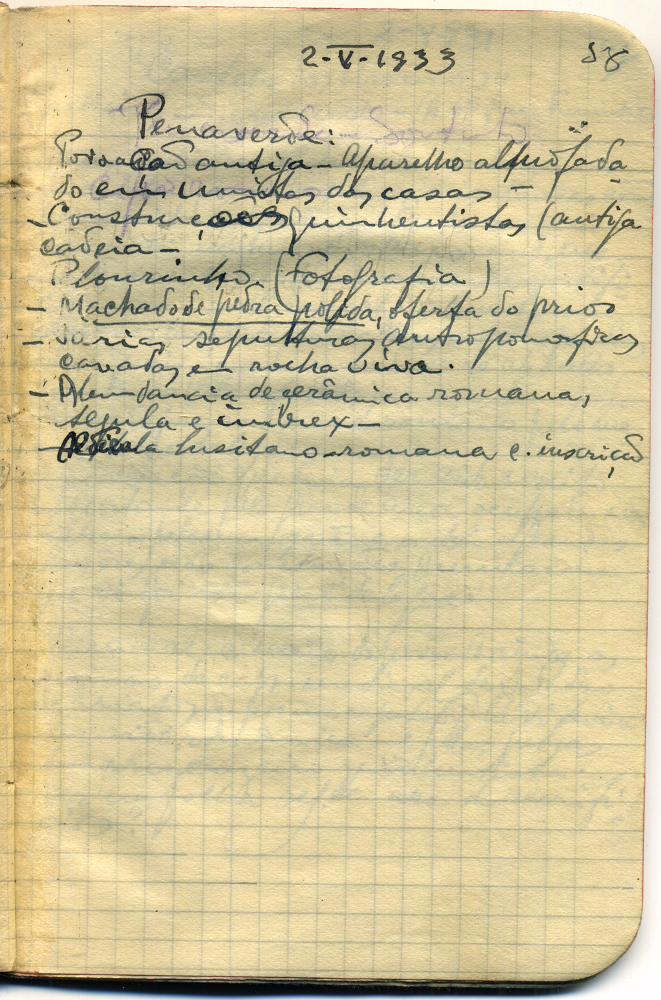 2-V-1933 58
Penaverde:
Povoação antiga - Aparelho almofada
do em muitas das casas -
- Construções quinhentistas (antiga
cadeia -
Plourinho (Fotografia)
- Machado de pedra polida, oferta do prior
- Varias sepulturas antropomorficas
cavadas em rocha viva.
- Abundancia de cerâmica romana,
tegula e imbrex -
- lusitano-romana c. inscrição